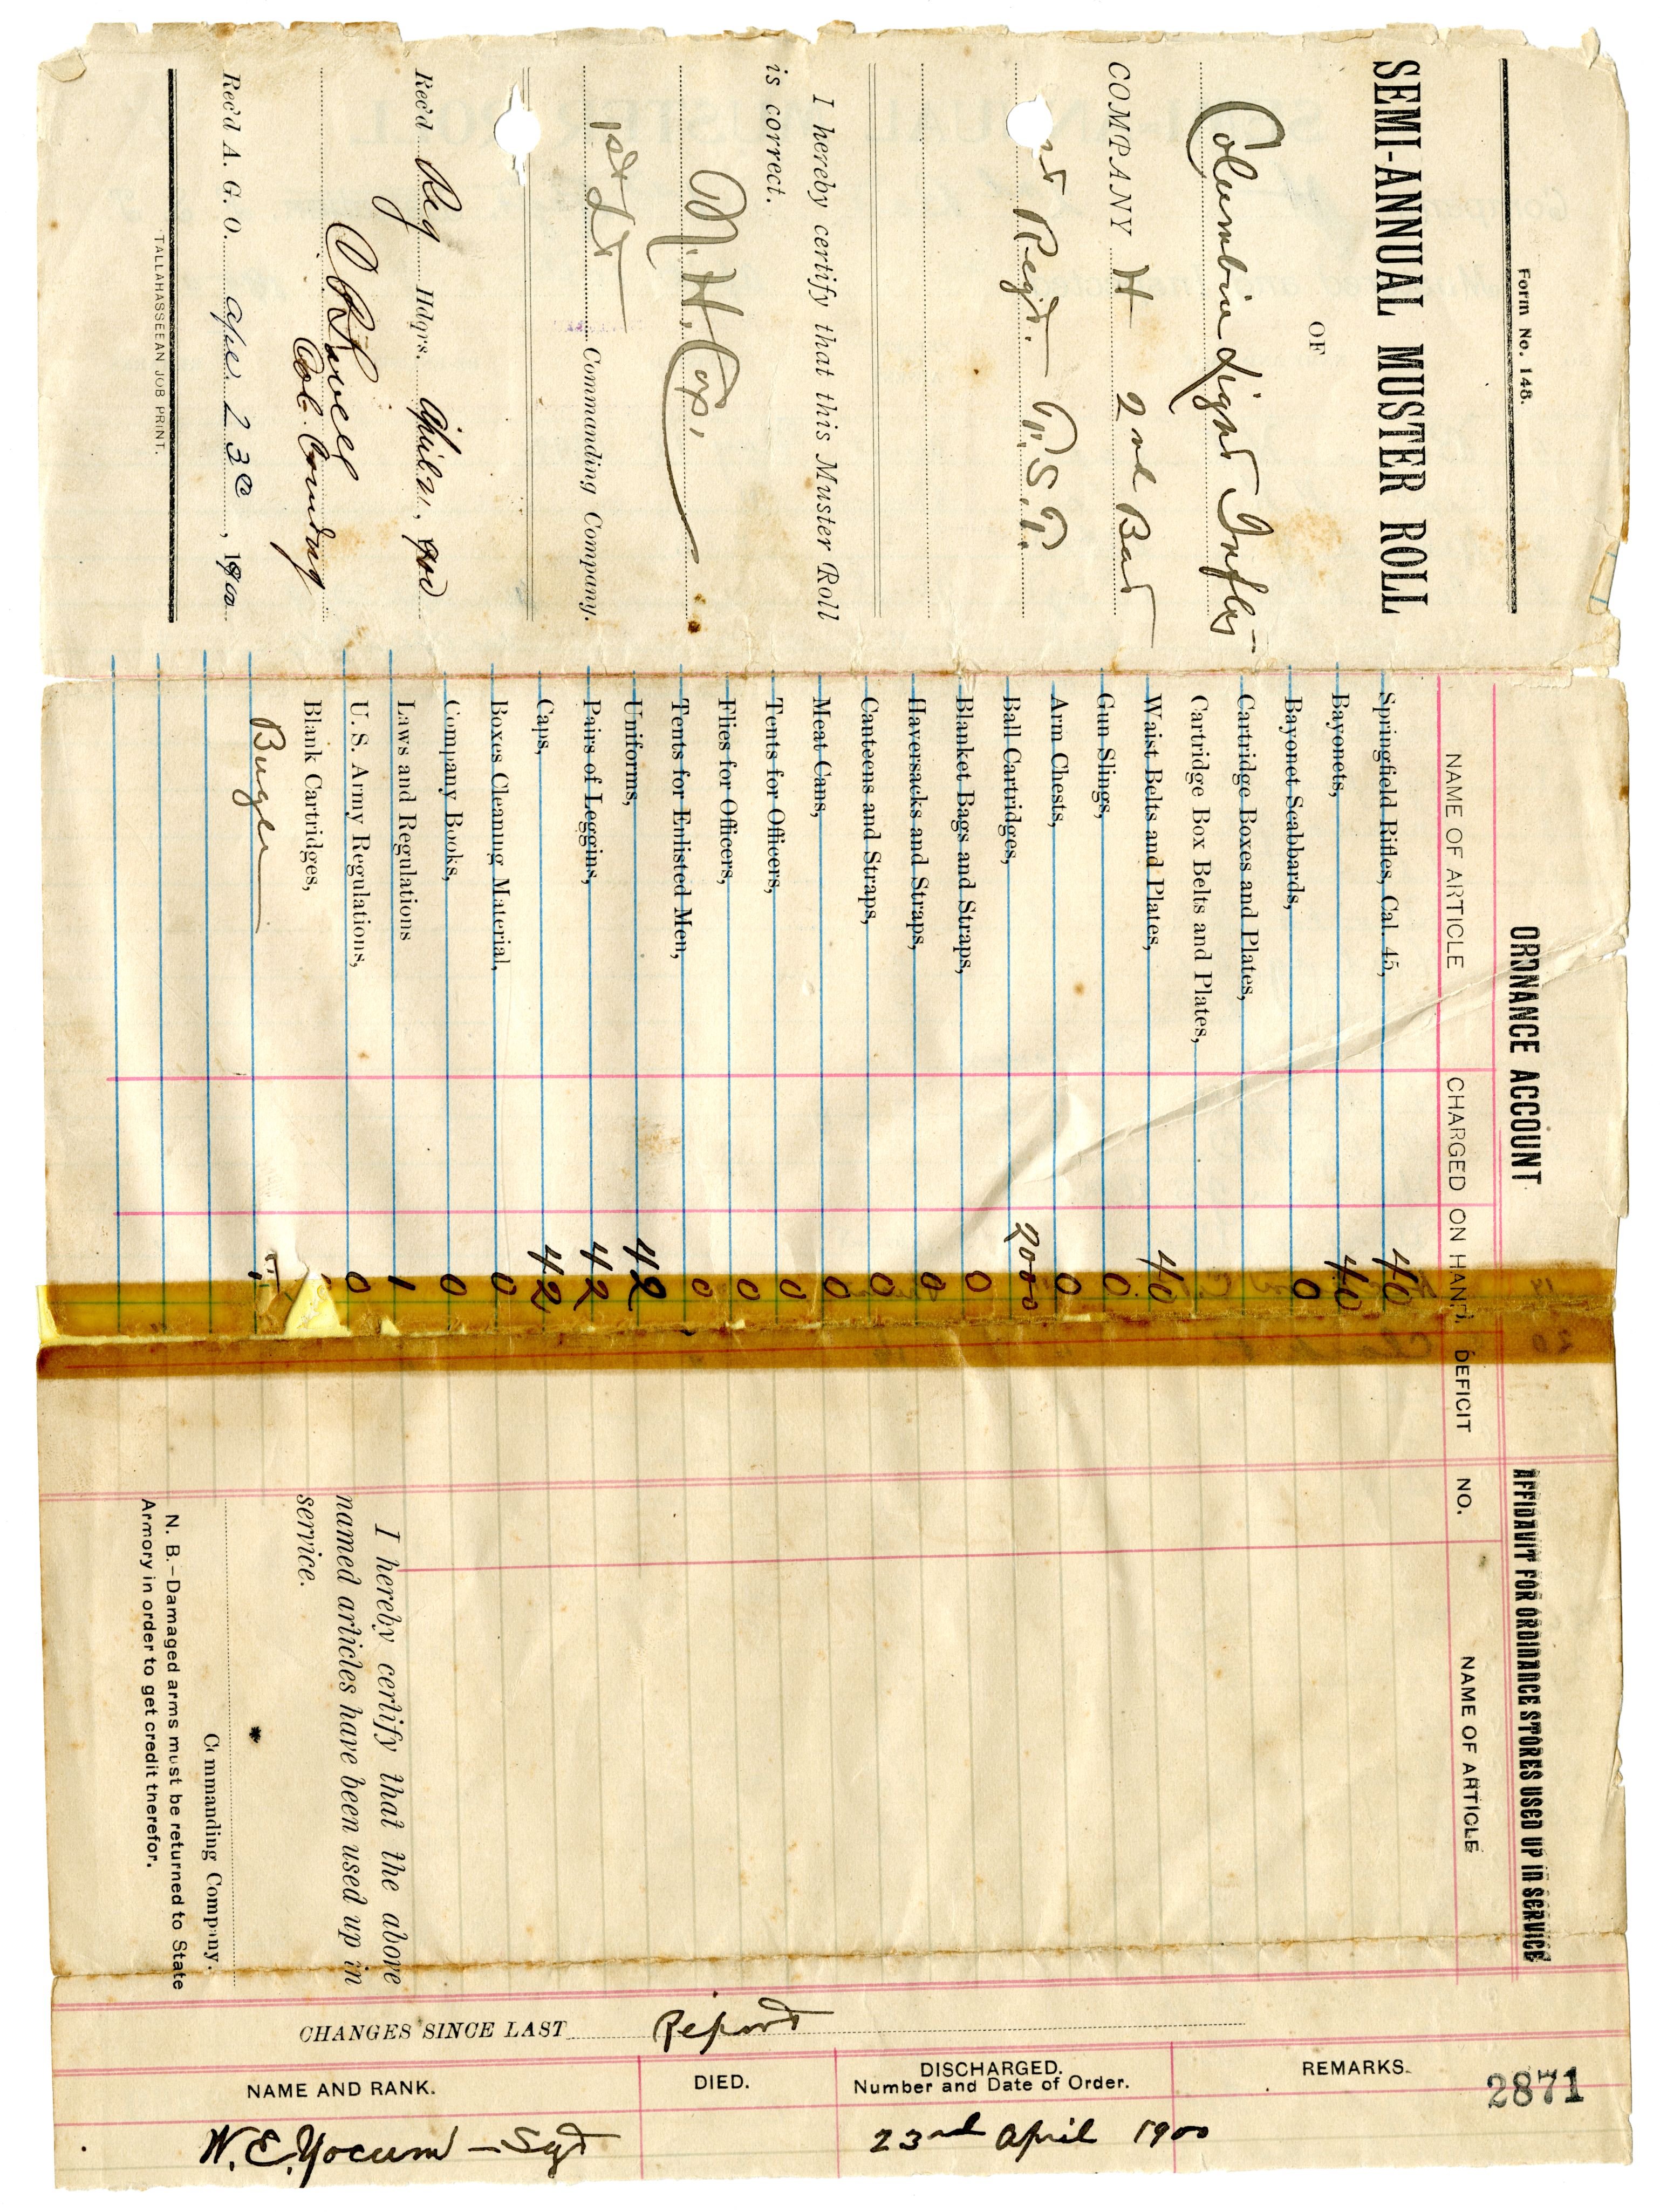 Form No. 148.
SEMI-ANNUAL MUSTER ROLL
OF
Columbia Light Inftry
COMPANY H 2nd Bat
Regt. F. S. T.
I hereby certify that this Muster Roll
is correct.
M. H.
1st Lt Commanding Company.
Rec'd Reg Hdqrs. April 21, 1900
Col. Comdng
Rec'd A. G. O. Apr. 23d, 1900
TALLAHASSEEAN JOB PRINT.
ORDNANCE ACCOUNT
NAME OF ARTICLE CHARGED ON HAND. DEFICIT
Springfield Rifles, Cal. 45, 40
Bayonets, 40
Bayonet Scabbards, 0
Cartridge Boxes and Plates,
Cartridge Box Belts and Plates,
Waist Belts and Plates, 40
Gun Slings, 0
Arm Chests, 0
Ball Cartridges, 2000
Blanket Bags and Straps, 0
Haversacks and Straps, 0
Canteens and Straps, 0
Meat Cans, 0
Tents for Officers, 0
Flies for Officers, 0
Tents for Enlisted Men, 0
Uniforms, 42
Pairs of Leggins, 42
Caps, 42
Boxes Cleaning Material, 0
Company Books, 0
Laws and Regulations 1
U. S. Army Regulations, 0
Blank Cartridges,
Bugle
AFFIDAVIT FOR ORDINANCE STORES USED UP IN SERVICE
NO. NAME OF ARTICLE
I hereby certify that the above
named articles have been used up in
service.
Commanding Company.
N. B.—Damaged arms must be returned to State
Armory in order to get credit therefor.
CHANGES SINCE LAST Report
NAME AND RANK. DIED. DISCHARGED. Number and Date of Order. REMARKS.
2871
W. E. Yocum - Sgt 23rd April 1900